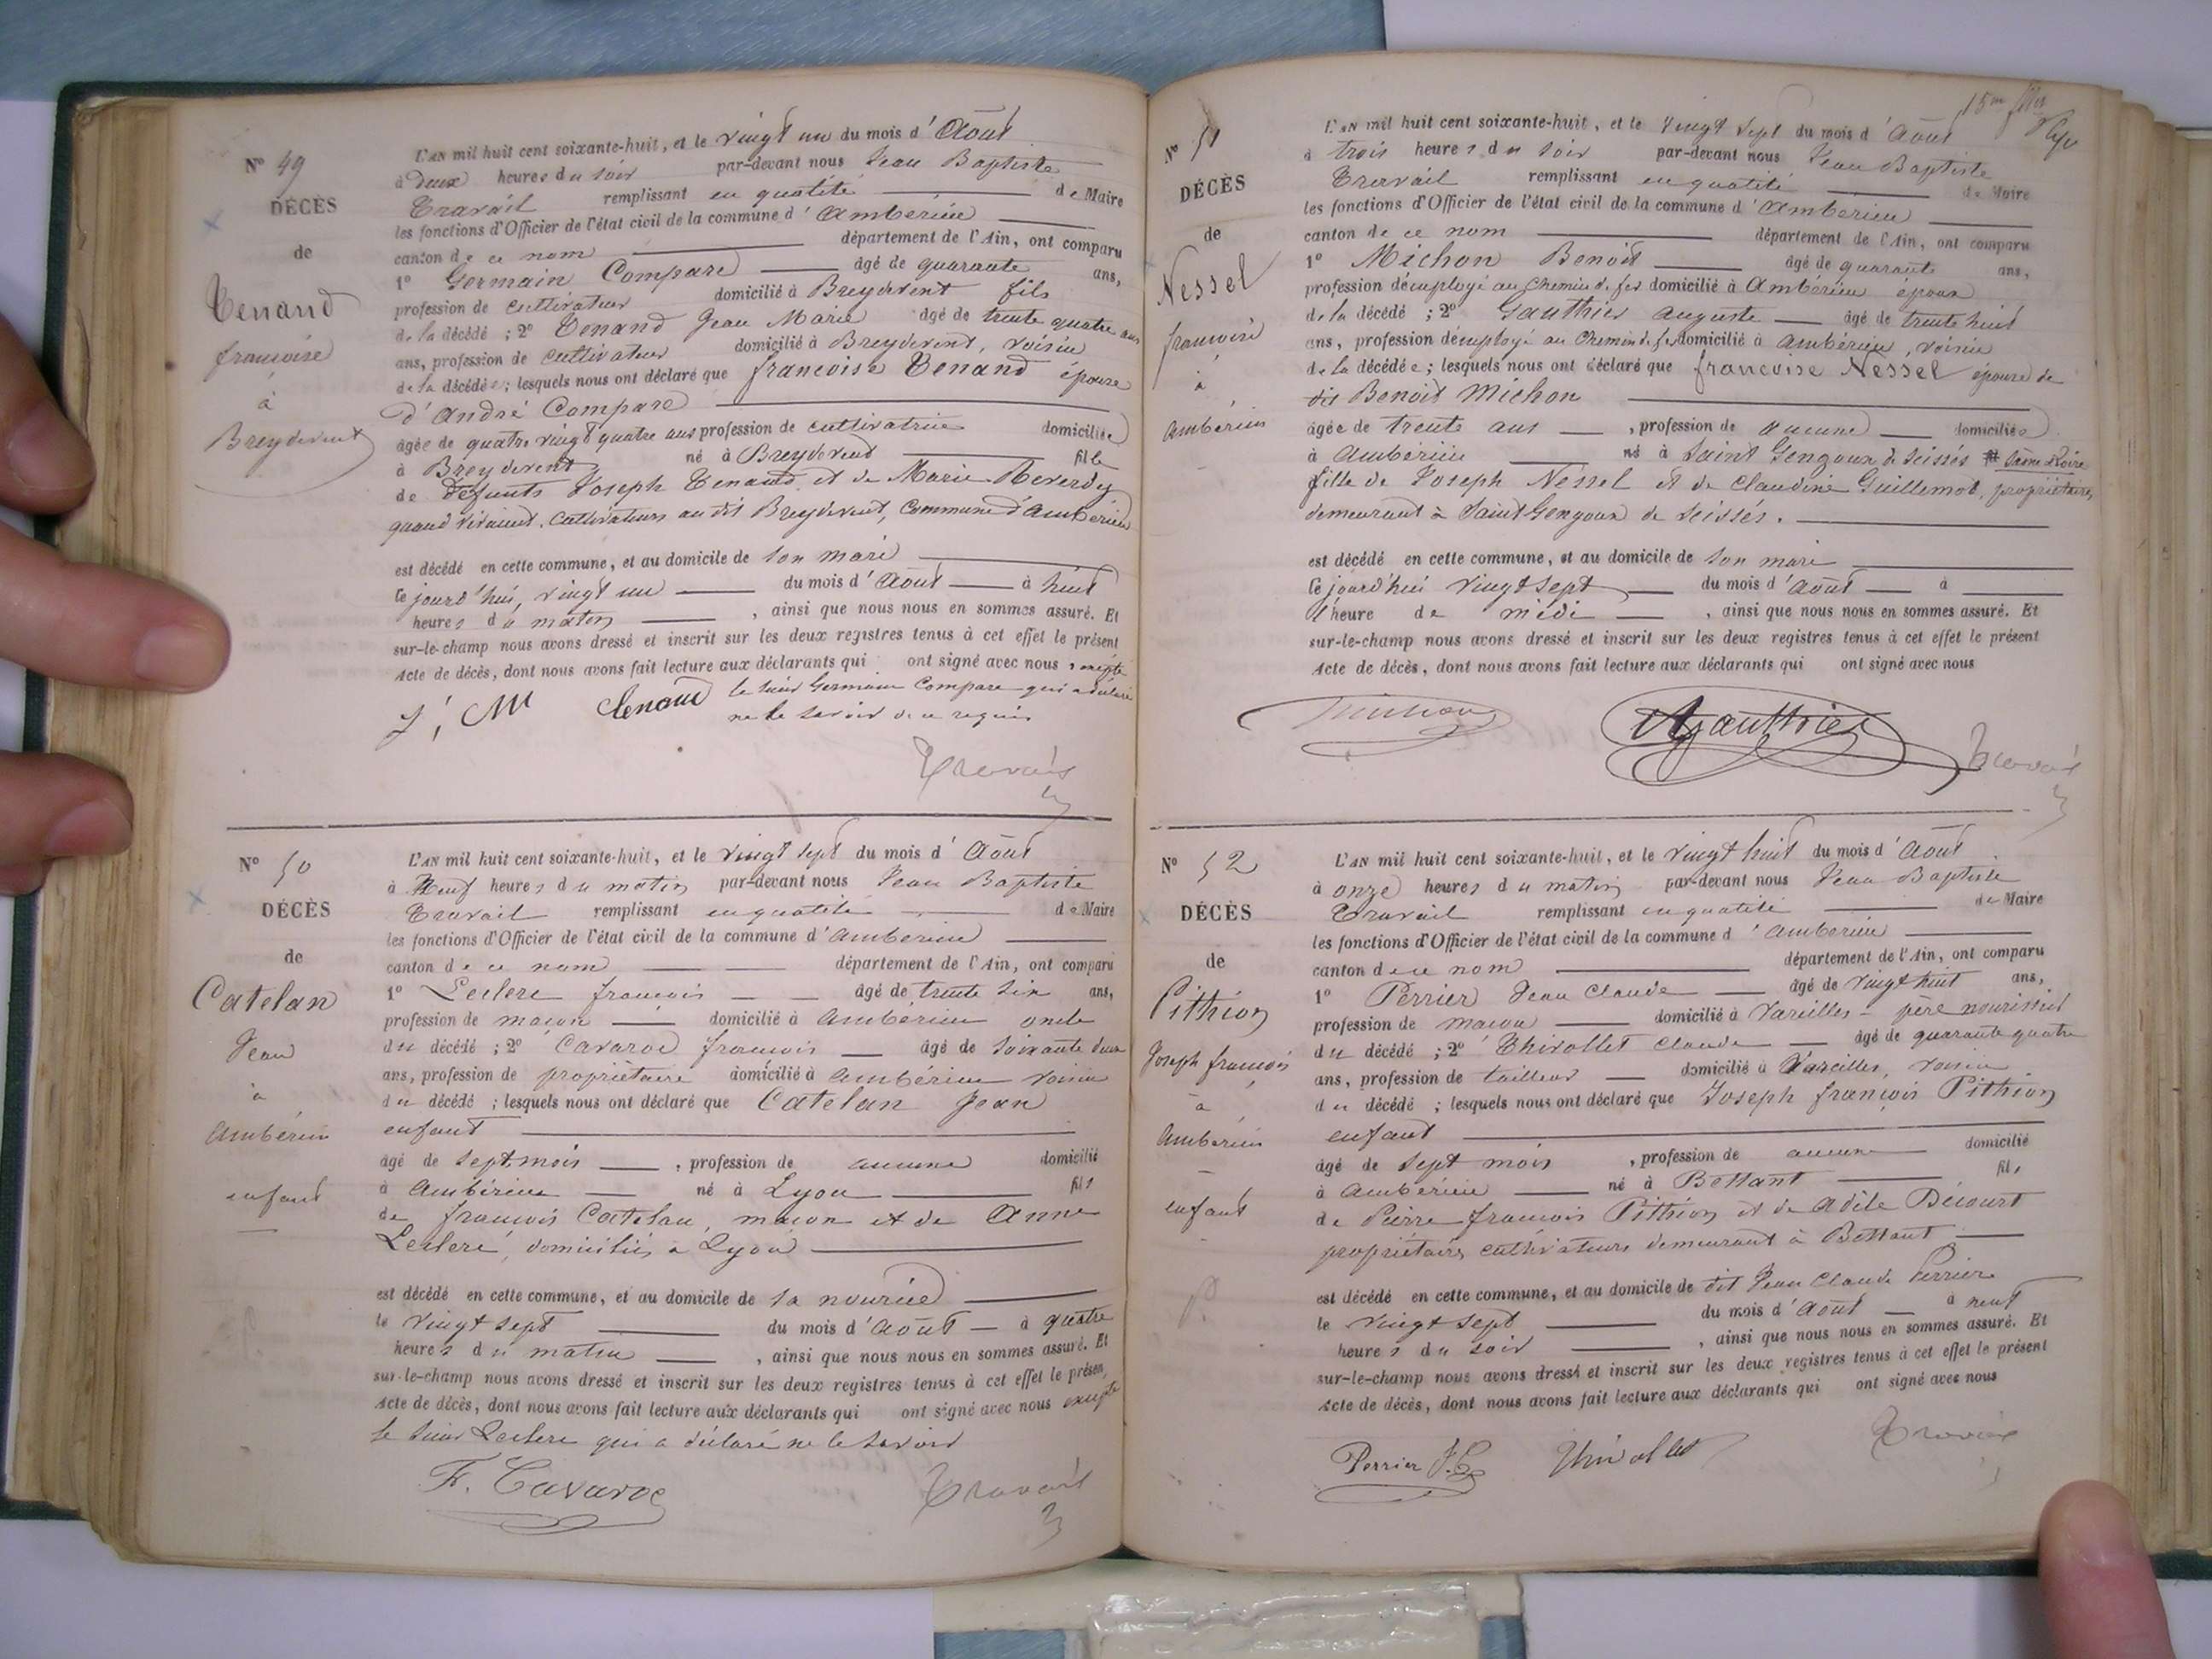 N° 49
DÉCÈS
de
Tenand
francoise
à
Breydevent
L'AN mil huit cent soixante-huit, et le vingt un du mois d'Août
à deux heures du soir par-devant nous Jean Baptiste
Travail remplissant en qualité de Maire
les fonctions d'Officier de l'état civil de la commune d'Ambérieu
canton de ce nom département de l'Ain, ont comparu
1° Germain Compare âgé de quarante ans,
profession de cultivateur domicilié à Breydevent fils
de la décédé ; 2° Tenand Jean Marie âgé de trente quatre ans
ans, profession de cultivateur domicilié à Breydevent, voisin
de la décédée ; lesquels nous ont déclaré que francoise Tenand épouse
d'André Compare
âgée de quatre vingt quatre ans profession de cultivatrice domiciliée
à Breydevent né à Breydevend fille
de défunts Joseph Tenand et de Marie Reverdy
quand vivaient cultivateurs au dit Breydevent, Commune d'Ambérieu
est décédé en cette commune, et au domicile de son mari
ce jourd'hui, vingt un du mois d'Août à huit
heures du matin , ainsi que nous nous en sommes assuré. Et
sur-le-champ nous avons dressé et inscrit sur les deux registres tenus à cet effet le présent
Acte de décès, dont nous avons fait lecture aux déclarants qui ont signé avec nous excepté
le sieur Germain Compare qui a déclaré
ne le savoir de ce requis
J, M tenand
Travail
N° 50
DÉCÈS
de
Catelan
Jean
à
Ambérieu
enfant
L'AN mil huit cent soixante-huit, et le vingt sept du mois d'Août
à Neuf heures du matin par-devant nous Jean Baptiste
Travail remplissant en qualité de Maire
les fonctions d'Officier de l'état civil de la commune d'Ambérieu
canton de ce nom département de l'Ain, ont comparu
1° Leclerc francois âgé de trente six ans,
profession de maçon domicilié à Ambérieu oncle
du décédé ; 2° Cavaroc francois âgé de soixante deux
ans, profession de propriétaire domicilié à Ambérieu voisin
du décédé ; lesquels nous ont déclaré que Catelan Jean
enfant
âgé de sept mois , profession de aucune domicilié
à Ambérieu né à Lyon fils
de francois Catelan, maçon et de Anne
Leclerc, domiciliés à Lyon
est décédé en cette commune, et au domicile de sa nourrice
le vingt sept du mois d'Août à quatre
heures du matin , ainsi que nous nous en sommes assuré. Et
sur-le-champ nous avons dressé et inscrit sur les deux registres tenus à cet effet le présent
Acte de décès, dont nous avons fait lecture aux déclarants qui ont signé avec nous excepté
le sieur Leclerc qui a déclaré ne le savoir
F. Cavaroc
Travail
15me
N° 51
DÉCÈS
de
Nessel
francoise
à
Ambérieu
L'AN mil huit cent soixante-huit, et le vingt sept du mois d'Août
à trois heures du soir par-devant nous Jean Baptiste
Travail remplissant en qualité de Maire
les fonctions d'Officier de l'état civil de la commune d'Ambérieu
canton de ce nom département de l'Ain, ont comparu
1° Michon Benoit âgé de quarante ans,
profession d'employé au chemin de fer domicilié à Ambérieu époux
de la décédé ; 2° Gauthier Auguste âgé de trente huit
ans, profession d'employé au Chemin de fer domicilié à Ambérieu, voisin
de la décédée ; lesquels nous ont déclaré que francoise Nessel épouse de
dit Benoit Michon
âgée de trente ans , profession de aucune domiciliée
à Ambérieu né à Saint Gengoux de Scissés Saône & Loire
fille de Joseph Nessel et de Claudine Guillemot, propriétaires
demeurant à Saint Gengoux de Scissés.
est décédé en cette commune, et au domicile de son mari
ce jourd'hui vingt sept du mois d'Août à
l'heure de midi , ainsi que nous nous en sommes assuré. Et
sur-le-champ nous avons dressé et inscrit sur les deux registres tenus à cet effet le présent
Acte de décès, dont nous avons fait lecture aux déclarants qui ont signé avec nous
Michon AGauthier Travail
N° 52
DÉCÈS
de
Pithion
Joseph francois
à
Ambérieu
enfant
L'AN mil huit cent soixante-huit, et le vingt huit du mois d'Août
à onze heures du matin par-devant nous Jean Baptiste
Travail remplissant en qualité de Maire
les fonctions d'Officier de l'état civil de la commune d'Ambérieu
canton de ce nom département de l'Ain, ont comparu
1° Perrier Jean Claude âgé de vingt huit ans,
profession de maçon domicilié à Vareilles - père nourissié
du décédé ; 2° Thivollet Claude âgé de quarante quatre
ans, profession de tailleur domicilié à Vareilles, voisin
du décédé ; lesquels nous ont déclaré que Joseph françois Pithion
enfant
âgé de sept mois , profession de aucune domicilié
à Ambérieu né à Bettant fils
de Pierre francois Pithion et de Adèle Décourt
propriétaires cultivateurs demeurant à Bettant
est décédé en cette commune, et au domicile de dit Jean Claude Perrier
le vingt sept du mois d'Août à neuf
heures du soir , ainsi que nous nous en sommes assuré. Et
sur-le-champ nous avons dressé et inscrit sur les deux registres tenus à cet effet le présent
Acte de décès, dont nous avons fait lecture aux déclarants qui ont signé avec nous
Perrier J.C Thivollet Travail